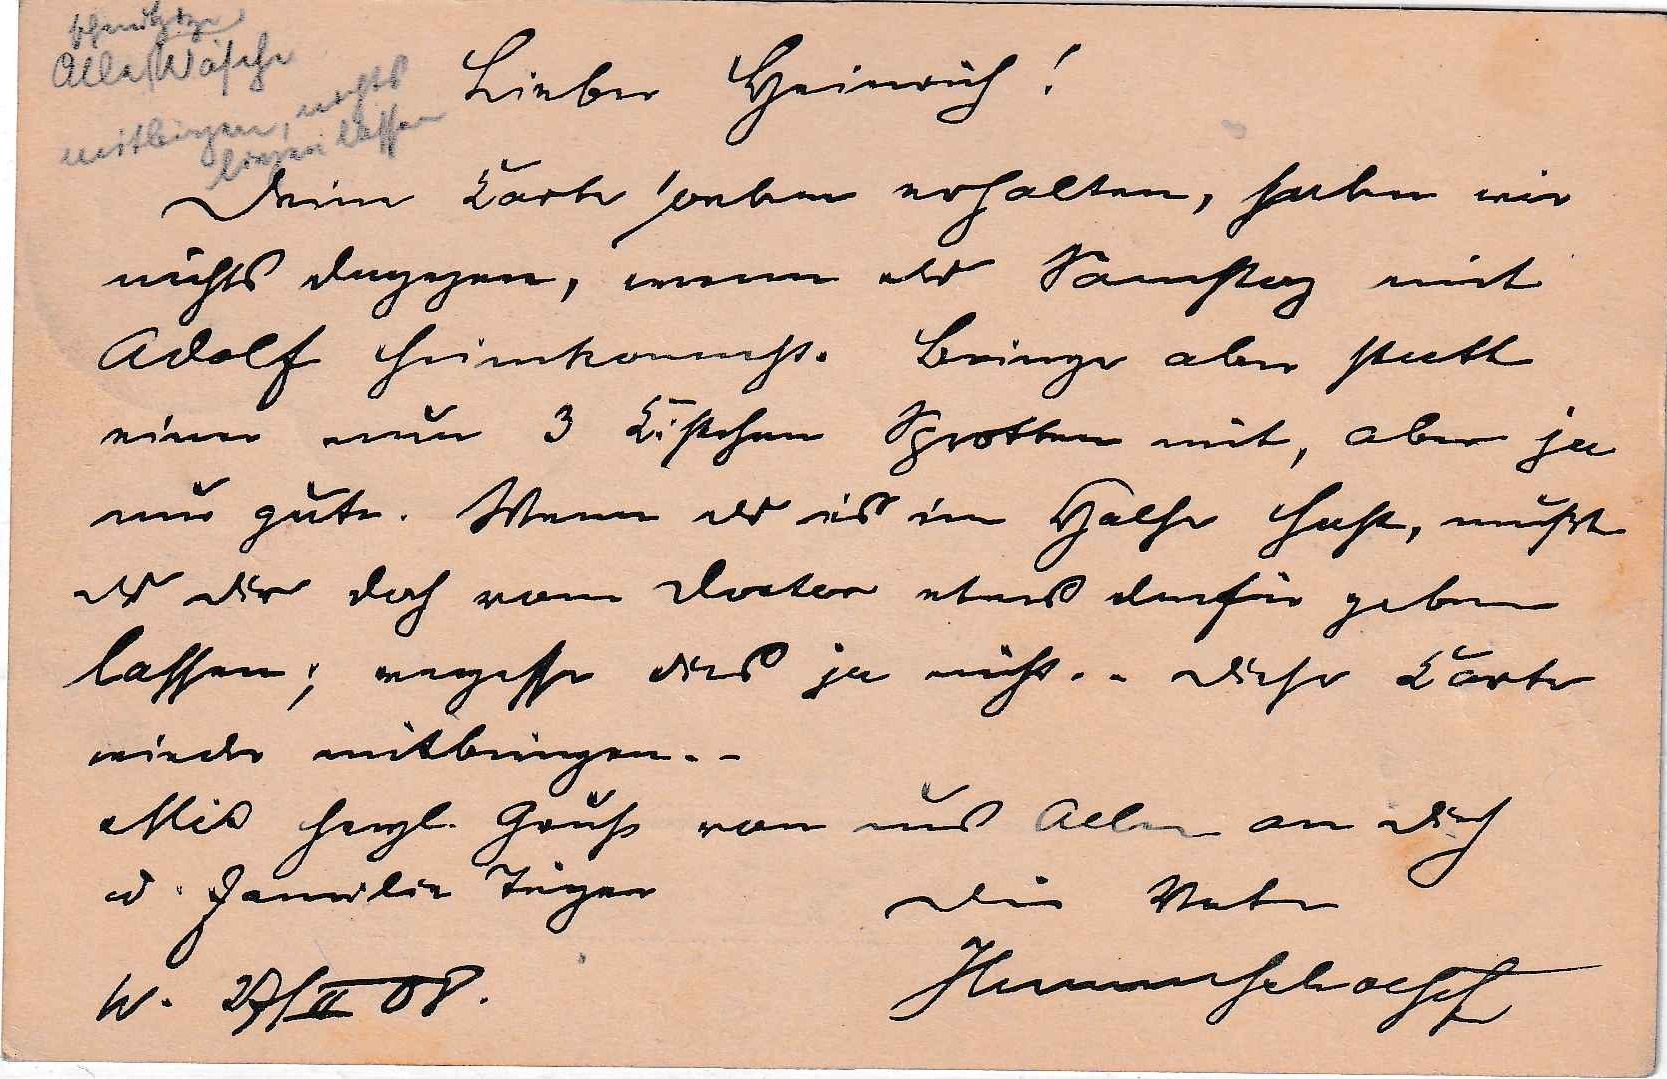 Alle Wäsche
mitbringen, nichts
liegen lassen
Lieber Heinrich!
Deine Karte soeben erhalten, haben wir
nichts dagegen, wenn du Samstag mit
Adolf heimkommst. Bringe aber statt
einer nun 3 Kistchen Sprotten mit, aber ja
nur gute. Wenn du es im Halse hast, mußt
du dir doch vom Doctor etwas dafür geben
lassen; vergesse dies ja nicht. - Diese Karte
wieder mitbringen. -
Mit herzl. Gruß von uns Allen an dich
u. Familie
Dein Vater
W. 27/II 08.